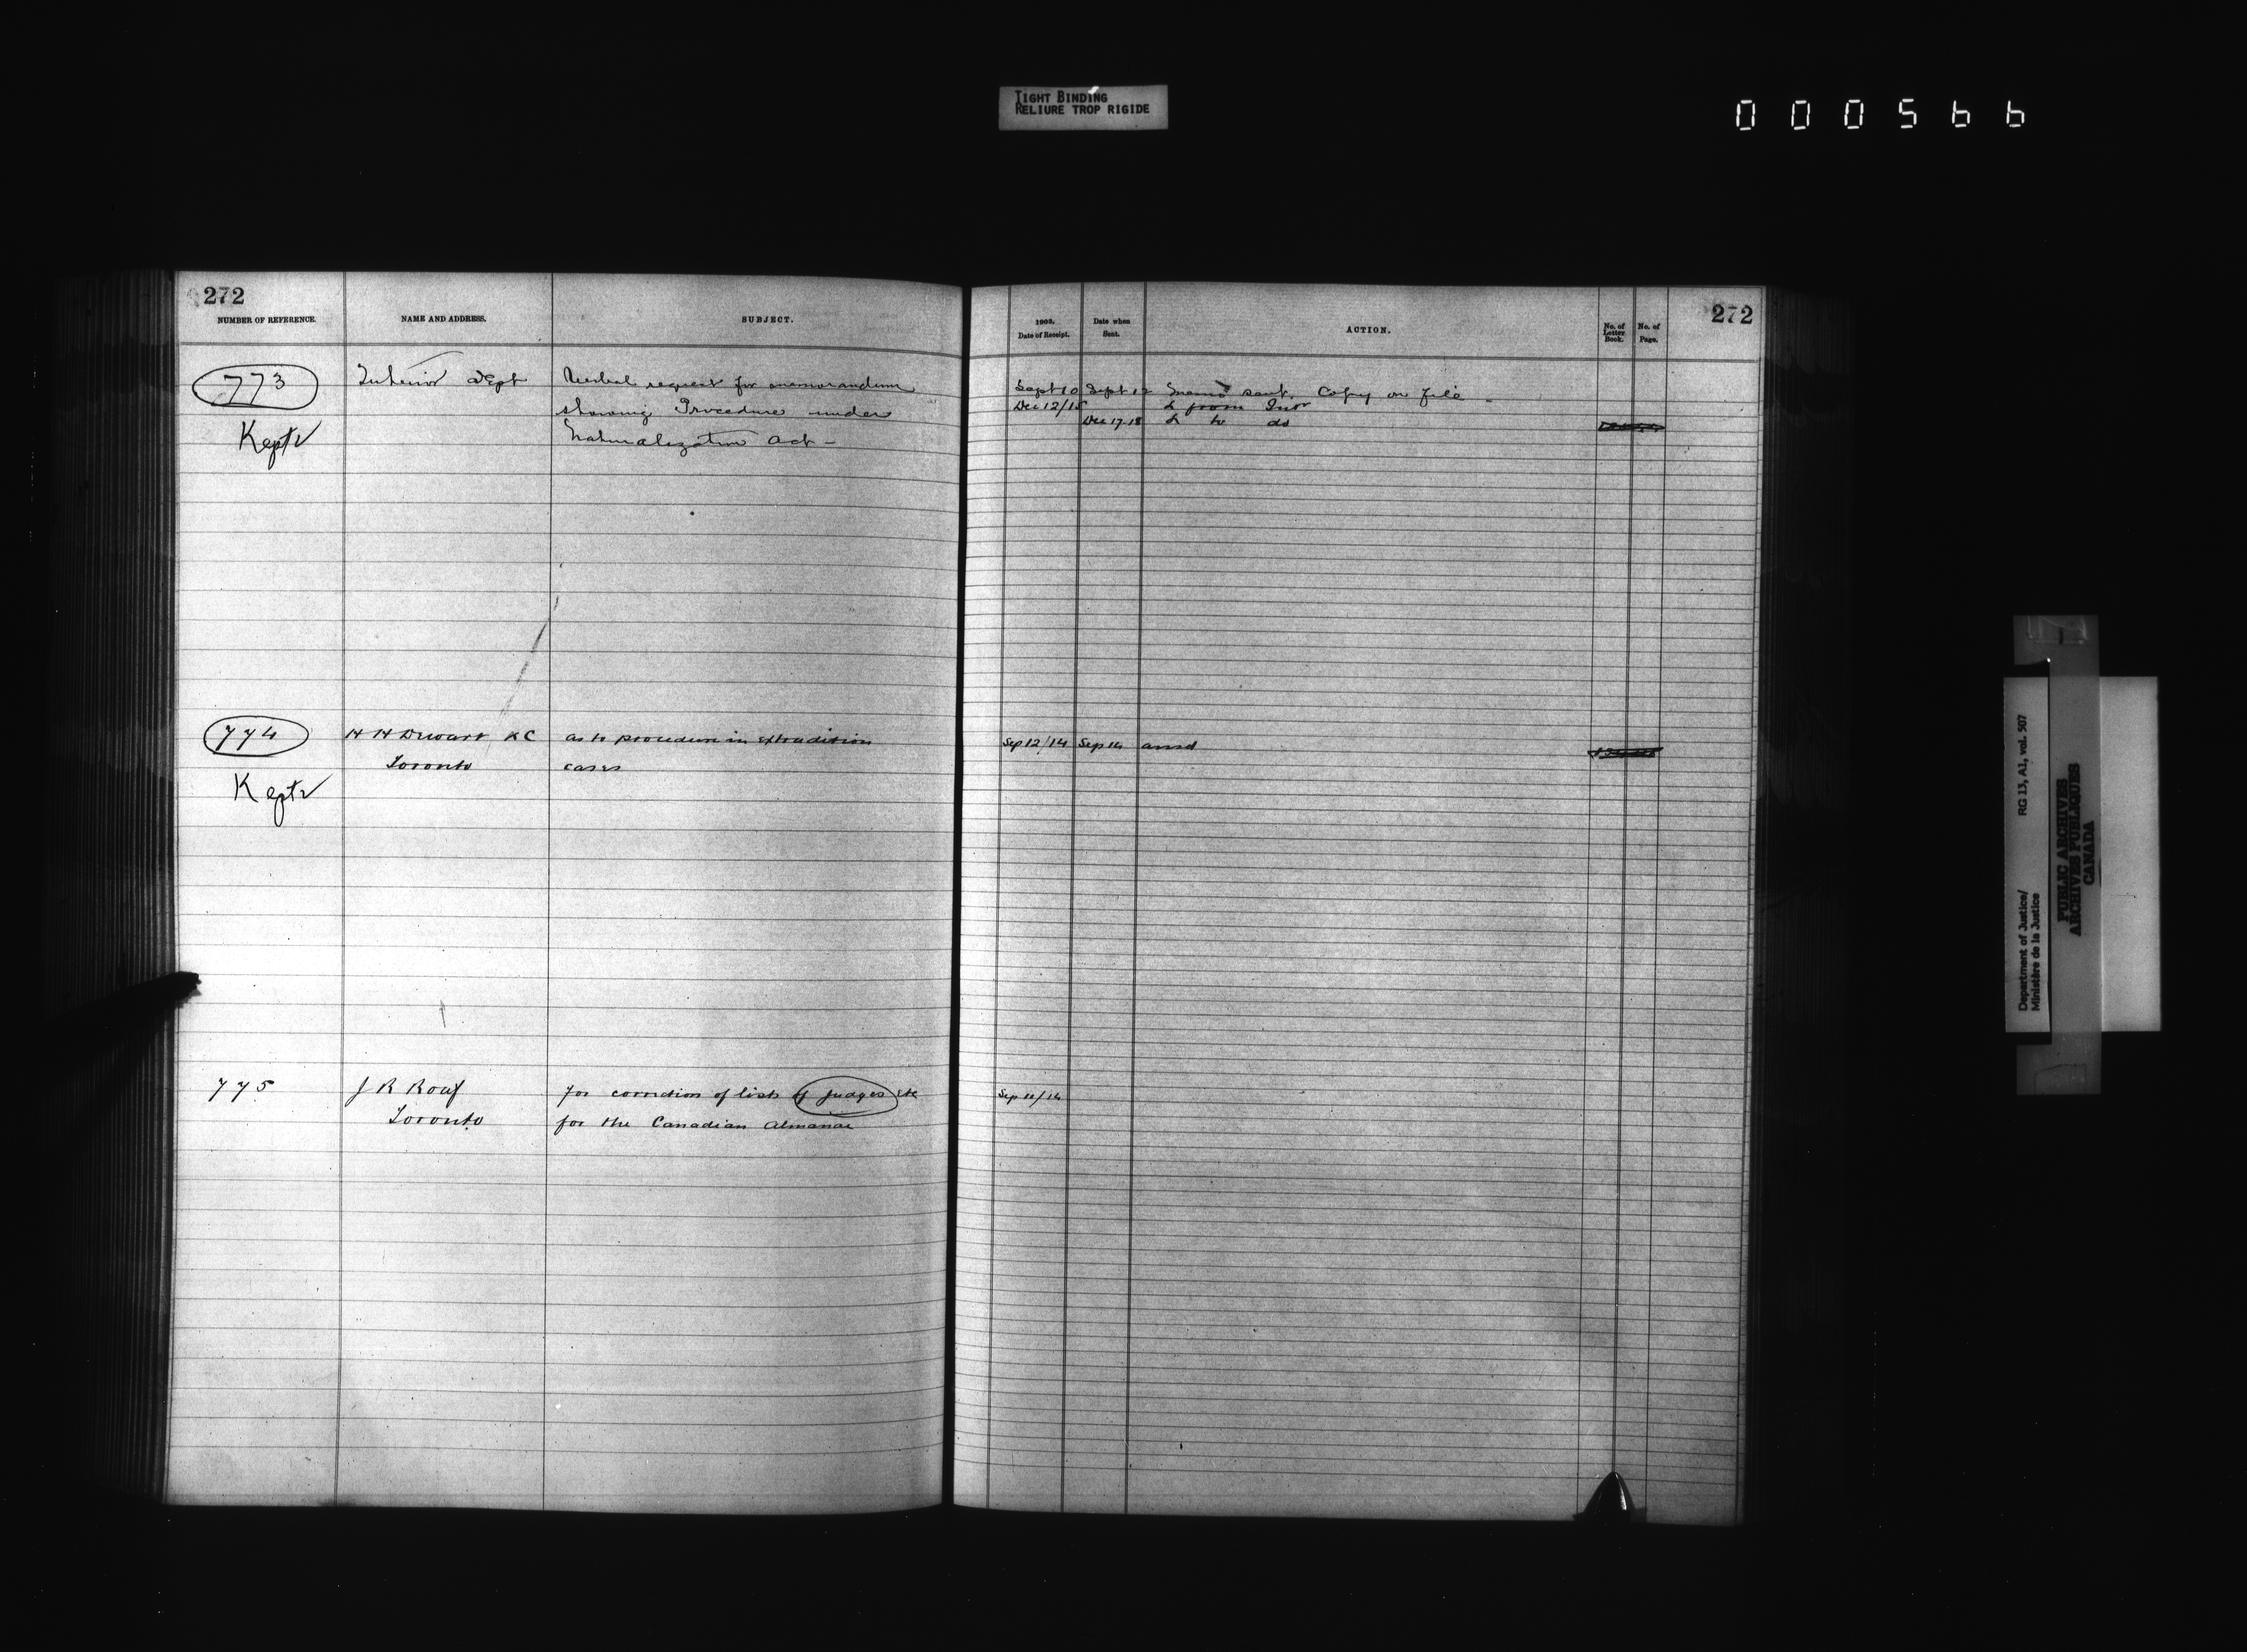 TIGHT BINDING
RELIURE TROP RIGIDE
000566
272
NUMBER OF REFERENCE.
NAME AND ADDRESS.
SUBJECT.
1903.
Date of Receipt.
Date when
Sent.
ACTION.
No. of
Letter
Book.
No. of
Page.
272
773
Kept
Interior Dept
Verbal request for memorandum
showing Procedure under
Naturalization Act -
Sept 10 Sept 12 Memo sent. Copy on file -
Dec 12/15 L from Intr
Dec 17-18 L to do
774
Kept
H H Dewart KC
Toronto
as to procedure in Extradition
cases
Sep 12/14 Sep 14 ansd
775
J R Roaf
Toronto
for correction of lists of Judges Etc
for the Canadian Almanac
Sep 11/14
Department of Justice/
Ministère de la Justice
RG 13, A1, vol. 507
PUBLIC ARCHIVES
ARCHIVES PUBLIQUES
CANADA